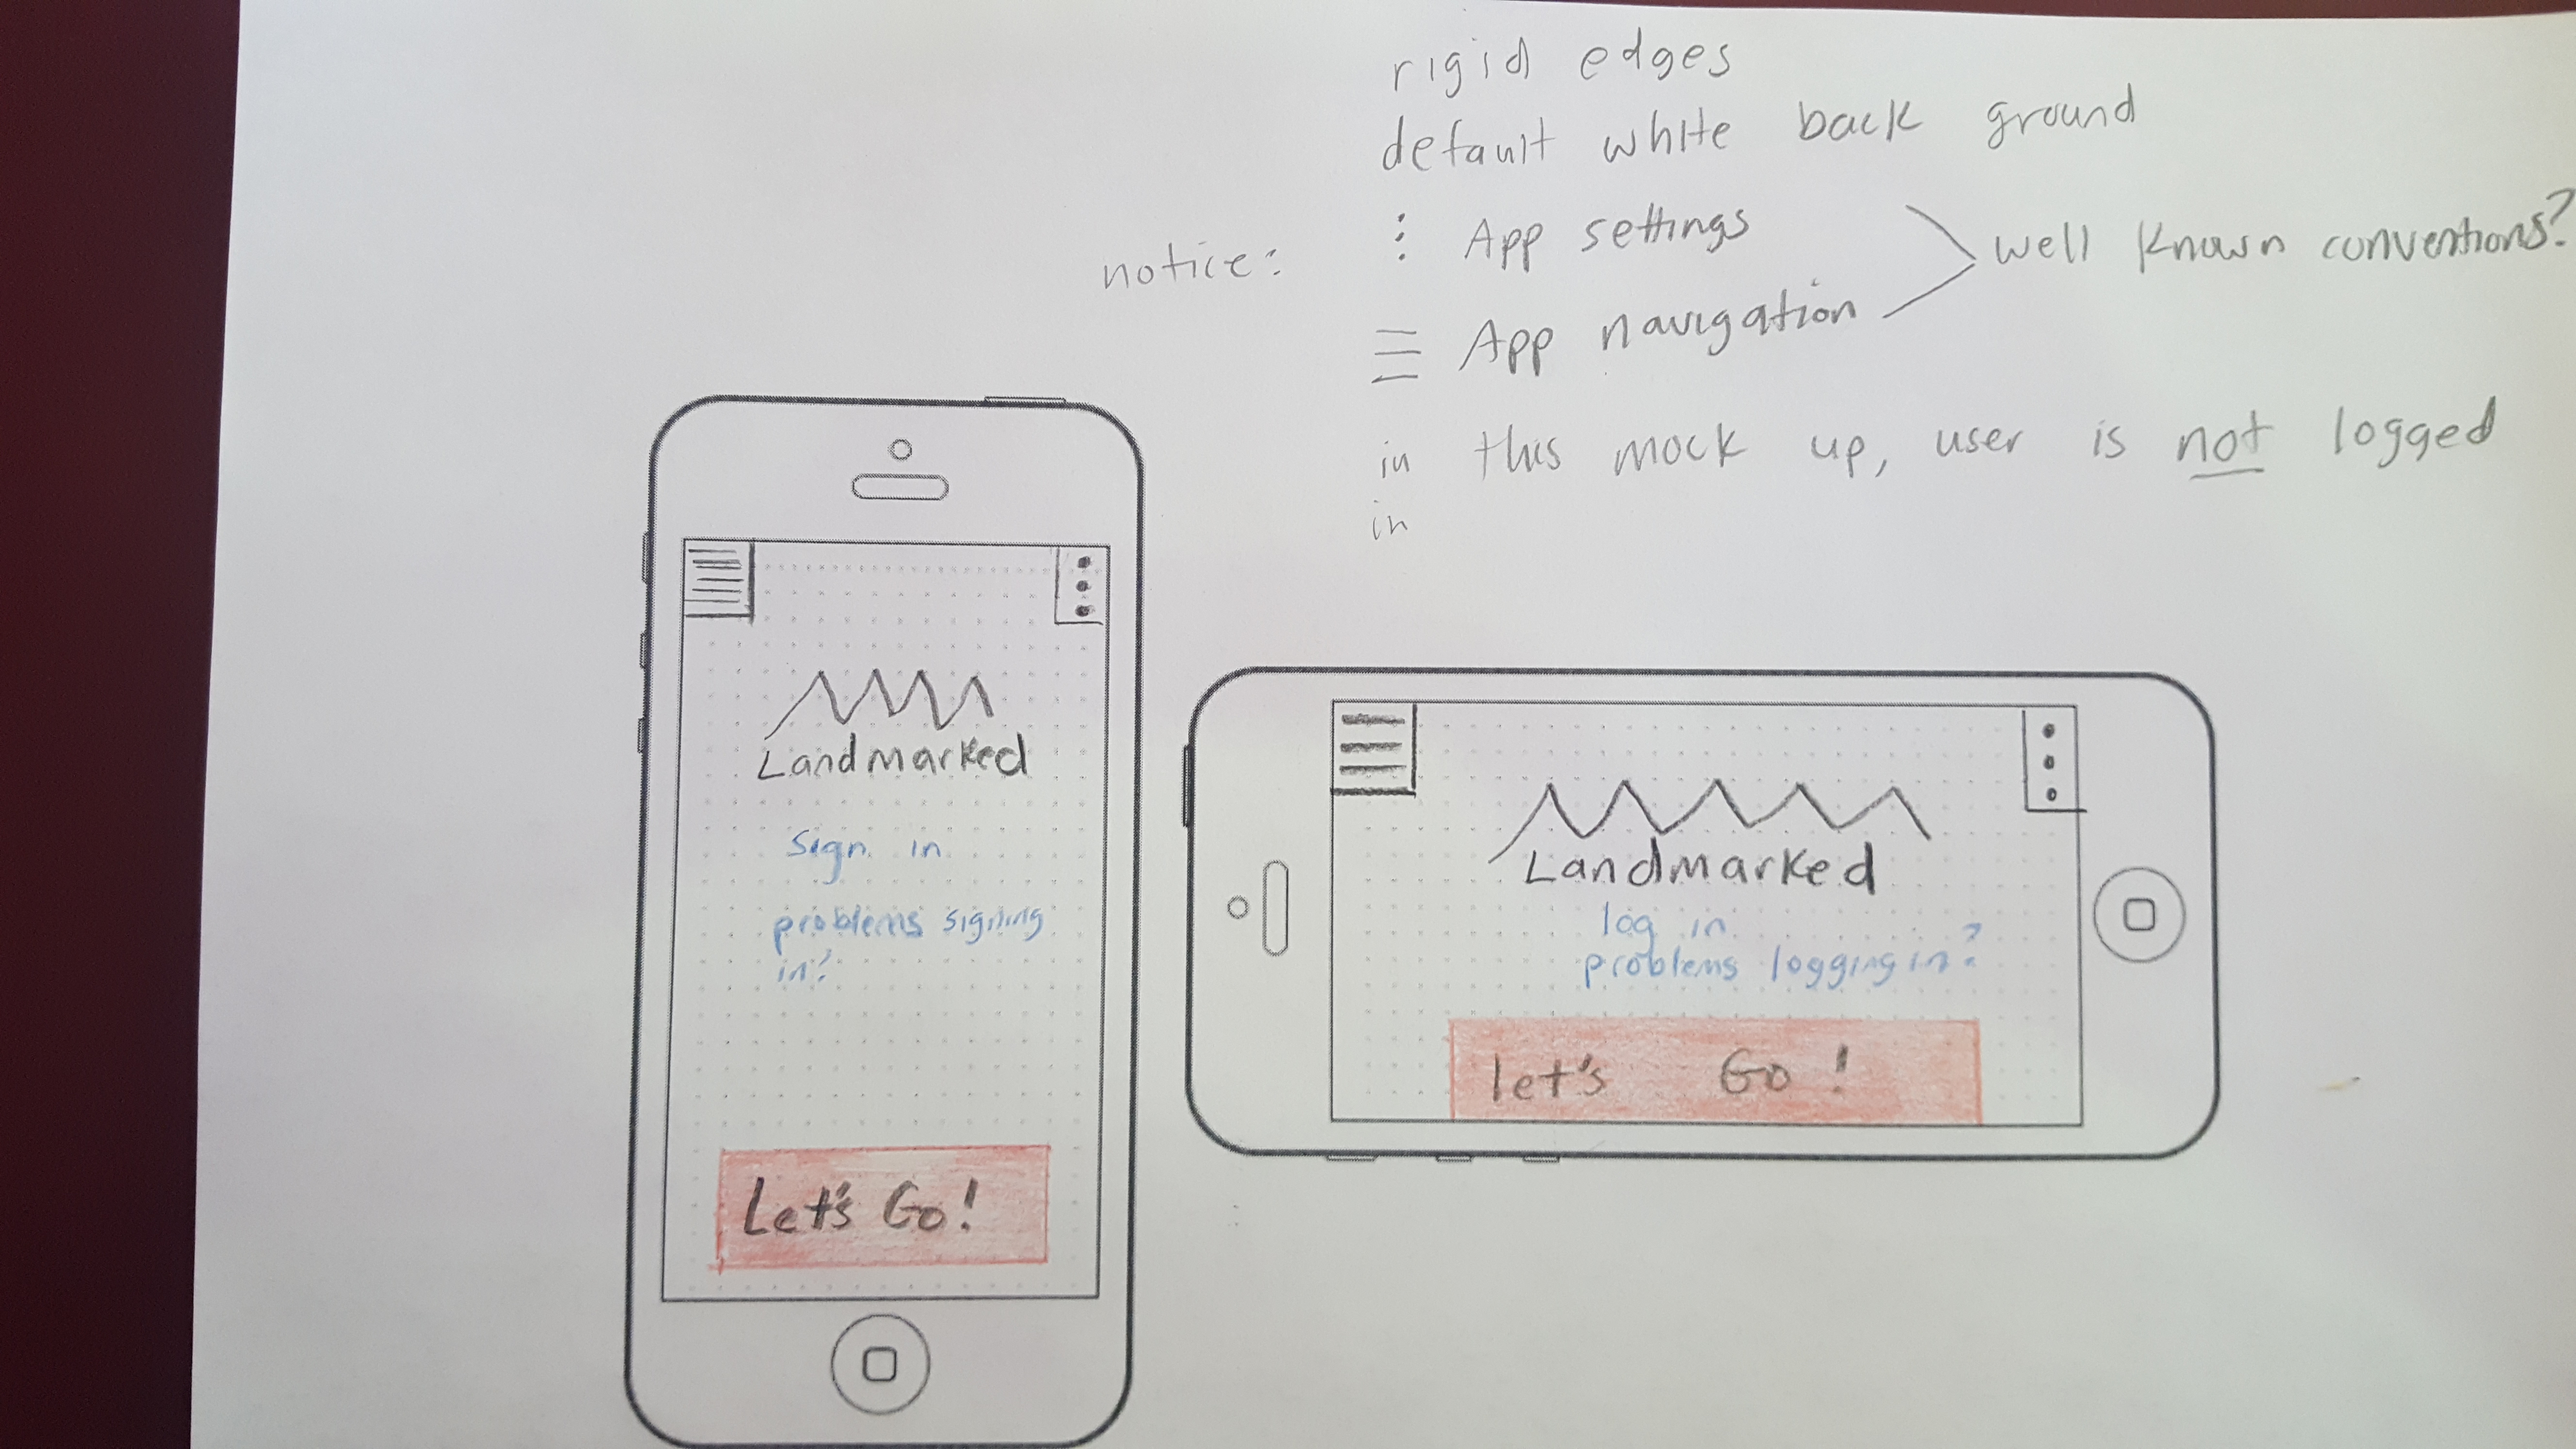 rigid edges
default white back ground
notice: : App settings
≡ App navigation
well known conventions?
in this mock up, user is not logged
in
Landmarked
Sign in
problems signing
in?
Let's Go!
Landmarked
log in
problems logging in?
let's Go!